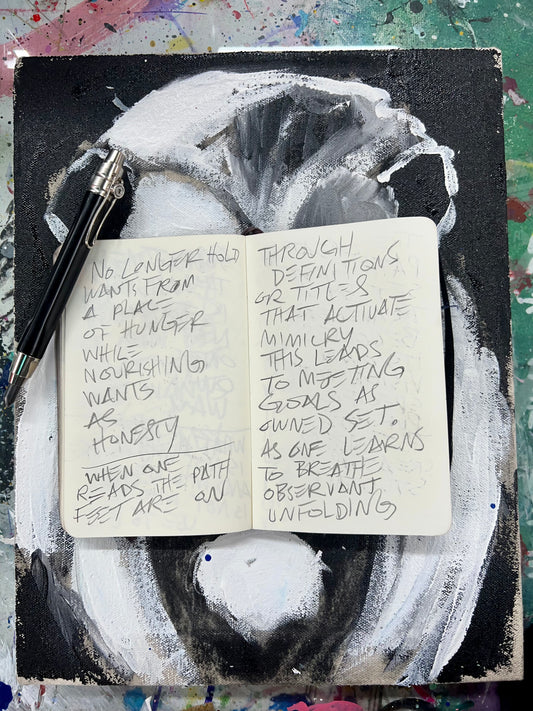 NO LONGER HOLD
WANTS FROM
A PLACE
OF HUNGER
WHILE
NOURISHING
WANTS
AS
HONESTY
WHEN ONE
READS THE PATH
FEET ARE ON
THROUGH
DEFINITIONS
OR TITLES
THAT ACTIVATE
MIMICRY
THIS LEADS
TO MEETING
GOALS AS
OWNED SET.
AS ONE LEARNS
TO BREATHE
OBSERVANT
UNFOLDING